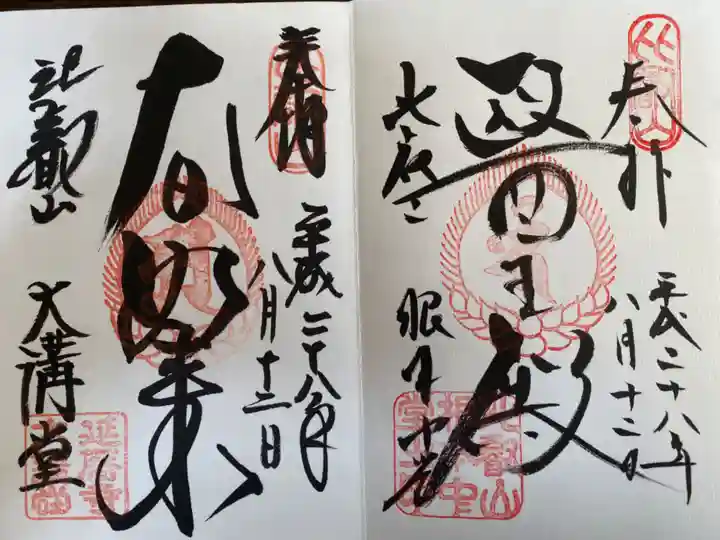 奉拝
平成二十八年
八月十二日
医王殿
比叡山
根本中堂
奉拝
平成二十八年
八月十二日
大日如来
比叡山
大講堂
延暦寺